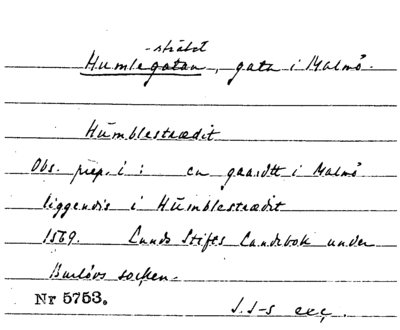 -strädet
Humlegatan, gata i Malmö.
Hŭmblestrædit
Obs. prep. i: en gaardtt i Malmö
liggendis i Hŭmblestrædit
1569. Lunds Stifts Landebok under
Burlövs socken.
Nr 5753.
J.S-s exc.